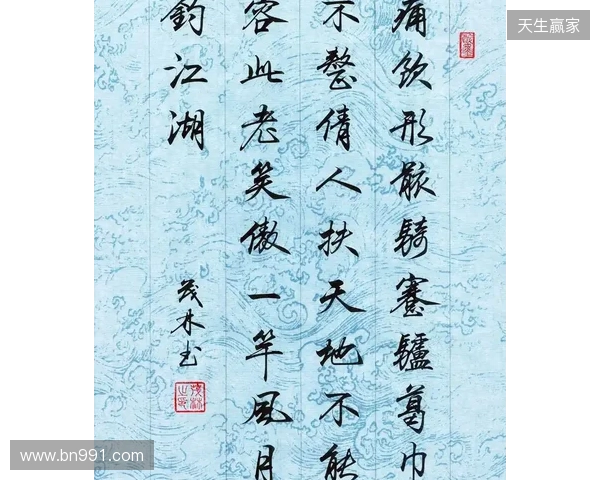 天生赢家
痛飲形骸騎蹇驢葛巾
不整倩人扶天地不能
容此老笑傲一竿風月
釣江湖
茂林书
www.bn991.com